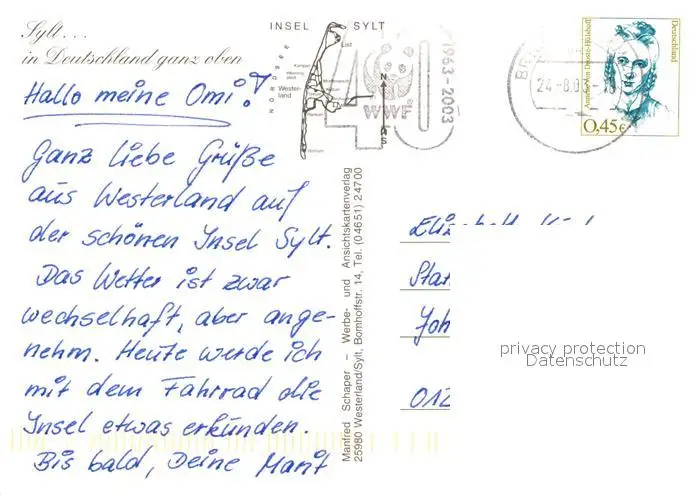 Sylt...
in Deutschland ganz oben
Hallo meine Omi!
Ganz liebe Grüße
aus Westerland auf
der schönen Insel Sylt.
Das Wetter ist zwar
wechselhaft, aber ange-
nehm. Heute werde ich
mit dem Fahrrad die
Insel etwas erkunden.
Bis bald, Deine
INSEL SYLT
NORDSEE
List
Kampen
Wester-
land
N
S
40
WWF
1963-2003
Manfred Schaper – Werbe- und Ansichtskartenverlag
25980 Westerland/Sylt, Bomhoffstr. 14, Tel. (04651) 24700
24-8.03
Deutschland
0,45€
Joh
012
privacy protection
Datenschutz